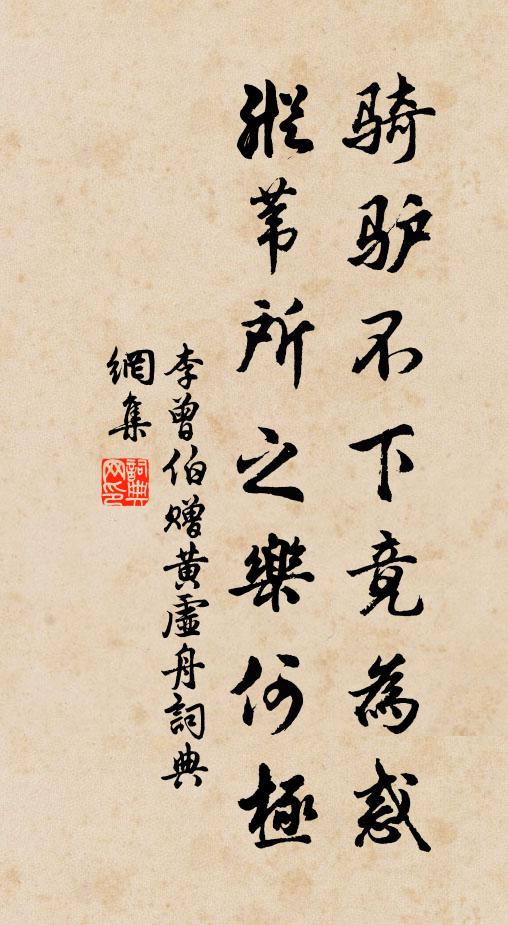 骑驴不下竟為惑
縱苇所之樂何極
李曾伯赠黄虛舟詞典
網集
詞典网印